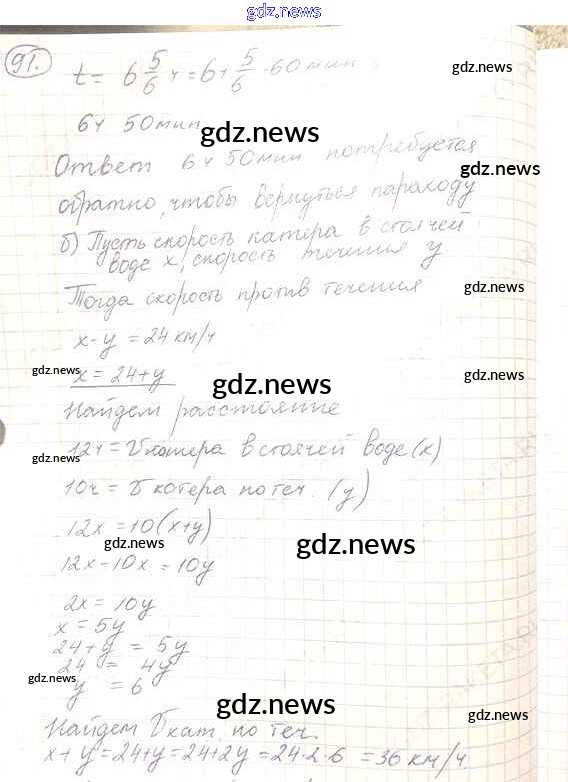 gdz.news
91.
gdz.news
t = 6 5/6 ч = 6 + 5/6 · 60 мин
6ч 50 мин
gdz.news
Ответ 6ч 50мин потребуется
gdz.news
обратно, чтобы вернуться пароходу
б) Пусть скорость катера в стоячей
воде x, скорость течения y
Тогда скорость против течения
gdz.news
x - y = 24 км/ч
gdz.news
x = 24 + y
gdz.news
gdz.news
Найдем расстояние
12ч = V катера в стоячей воде (x)
gdz.news
10ч = V котера по теч. (y)
12x = 10(x+y)
gdz.news
gdz.news
12x - 10x = 10y
2x = 10y
x = 5y
24 + y = 5y
24 = 4y
gdz.news
y = 6
gdz.news
gdz.news
Найдем V кат. по теч.
x + y = 24 + y = 24 + 2y = 24 · 2 · 6 = 36 км/ч